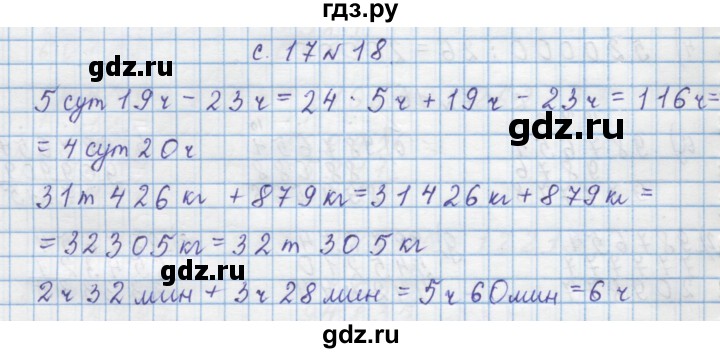 гдз.ру
с. 17 № 18
gdz.ru
5 сут 19 ч - 23 ч = 24 · 5 ч + 19 ч - 23 ч = 116 ч =
gdz.ru
= 4 сут 20 ч
31 т 426 кг + 879 кг = 31426 кг + 879 кг =
= 32305 кг = 32 т 305 кг
gdz.ru
2 ч 32 мин + 3 ч 28 мин = 5 ч 60 мин = 6 ч
gdz.ru